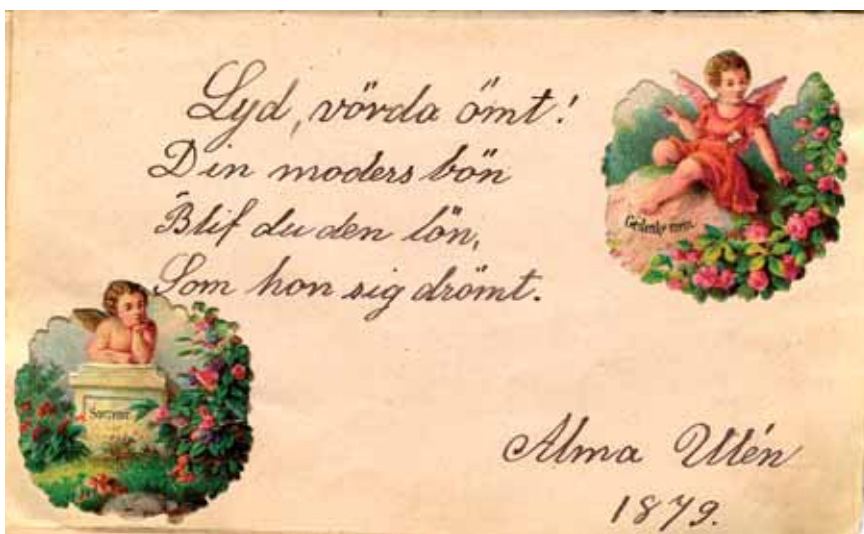 Lyd, vörda ömt!
Din moders bön
Blif du den lön,
Som hon sig drömt.
Gedenke mein.
Souvenir
Alma Utén
1879.